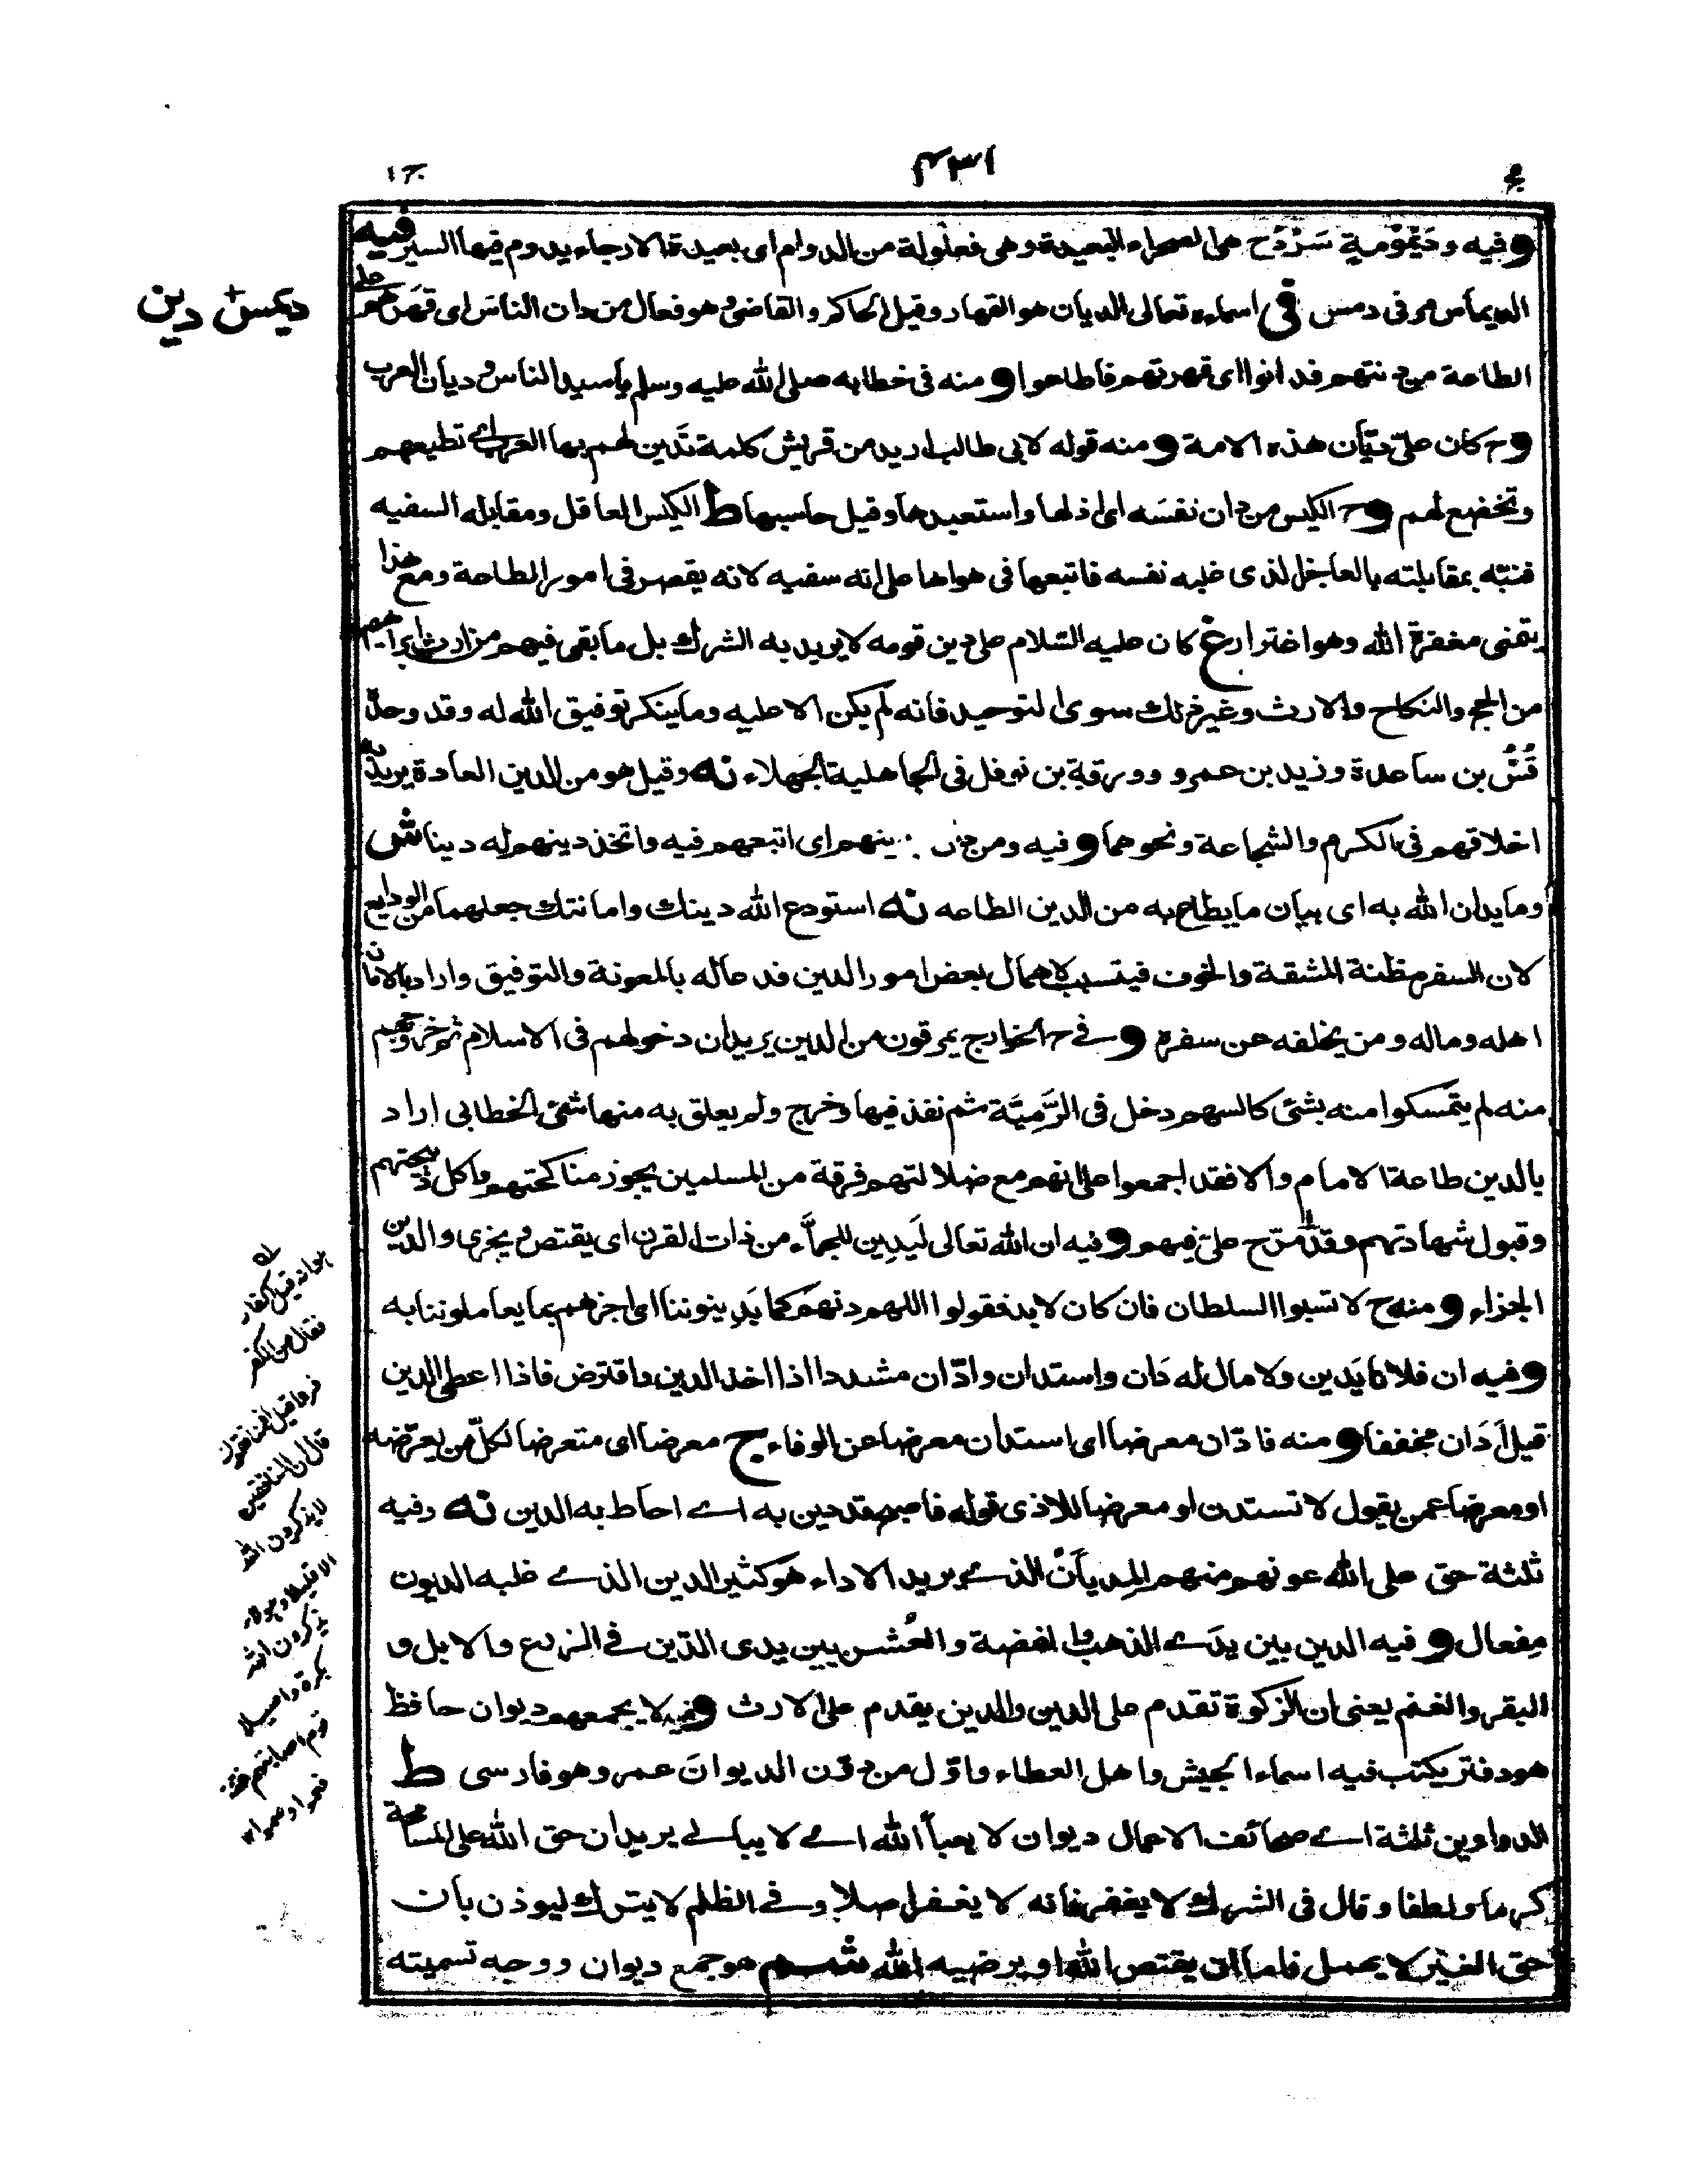 ۴۳۱
وفيه وديمومية سردح هى الصحراء البعيدة وهى فعلولة من الدوام اى بعيدة الارجاء يدوم فيها السير فيه
الديماس مر فى دمس فى اسمائه تعالى الديان هو القهار وقيل الحاكم والقاضى وهو فعال من دان الناس اى قهرهم على
ديمس دين
الطاعة من دنتهم فدانوا اى قهرتهم فاطاعوا ومنه فى خطابه صلى الله عليه وسلم ياسيد الناس وديان العرب
وح كان على ديّان هذه الامة ومنه قوله لابى طالب اريد من قريش كلمة تَدين لهم بها العرب اى تطيعهم
وتخضع لهم وح الكيس من دان نفسَه اى اذلها واستعبدها وقيل حاسبها ط الكيس العاقل ومقابله السفيه
فنبّه بمقابلته بالعاجز الذى غلبه نفسه فاتبعها فى هواها على انه سفيه لانه يقصر فى امور الطاعة ومع هذا
يتمنى مغفرة الله وهو اغترار غ كان عليه السّلام على دين قومه لا يريد به الشرك بل ما بقى فيهم من ارث ابراهيم
من الحج والنكاح والارث وغير ذلك سوى التوحيد فانه لم يكن الا عليه وما ينكر توفيق الله له وقد وحدّ
قُسّ بن ساعدة وزيد بن عمرو وورقة بن نوفل فى الجاهلية الجهلاء نه وقيل هو من الدين العادة يريد به
اخلاقهم فى الكرم والشجاعة ونحوهما وفيه ومن دان بدينهم اى اتبعهم فيه واتخذ دينهم له دينا ش
وما يدان الله به اى بيان ما يطاع به من الدين الطاعه نه استودع الله دينك وامانتك جعلهما من الودايع
لان السفر مظنة المشقة والخوف فيتسبب لاهمال بعض امور الدين فدعا له بالمعونة والتوفيق واراد بالامانة
اهله وماله ومن يخلفه عن سفره وفى ح الخوارج يمرقون من الدين يريد ان دخولهم فى الاسلام ثم خروجهم
منه لم يتمسكوا منه بشئ كالسهم دخل فى الرَّمِيَّة ثم نفذ فيها وخرج ولم يعلق به منها شئ الخطابى اراد
بالدين طاعة الامام والا فقد اجمعوا على انهم مع ضلالتهم فرقة من المسلمين يجوز مناكحتهم واكل ذبيحتهم
وقبول شهادتهم وقد مرّ ح على فيهم وفيه ان الله تعالى لَيَدِين للجمآء من ذات القرن اى يقتص ويجزى والدين
الجزاء ومنه ح لا تسبوا السلطان فان كان لابد فقولوا اللهم دنهم كما يَدِينوننا اى اجزهم بما يعاملوننا به
وفيه ان فلانا يَدين ولا مال له دَان واستدان وادّان مشددا اذا اخذ الدين واقترض فاذا اعطى الدين
قيل اَدَان مخففا ومنه فادّان معرضا اى استدان معرضا عن الوفاء ج معرضا اى متعرضا لكل من يعرّضه
او معرضا عمن يقول لا تستدن او معرضا للاذى قوله فاصبح قد دين به اى احاط به الدين نه وفيه
ثلثة حق على الله عونهم منهم المِديَانُ الذى يريد الاداء هو كثير الدين الذى غلبه الديون
مِفعال وفيه الدين بين يدَى الذهب والفضة والعُشر بين يدى الدّين فى الزرع والابل و
البقر والغنم يعنى ان الزكوة تقدم على الدين والدين يقدم على الارث وفيه لا يجمعهم ديوان حافظ
هو دفتر يكتب فيه اسماء الجيش واهل العطاء واوّل من دوّن الديوانَ عمر وهو فارسى ط
الدواوين ثلثة اى صحائف الاعمال ديوان لا يعبأ الله اى لا يبالى يريد ان حق الله على المسامحة
كرما ولطفا وقال فى الشرك لا يغفر فانه لا يغفر اصلا وفى الظلم لا يترك ليوذن بان
حق الغير لا يهمل فاما ان يقتص الله او يرضيه الله شم هو جمع ديوان ووجه تسميته
قال ان المنافقين
لا يذكرون الله
الا قليلا
يذكرون الله
بكرة واصيلا